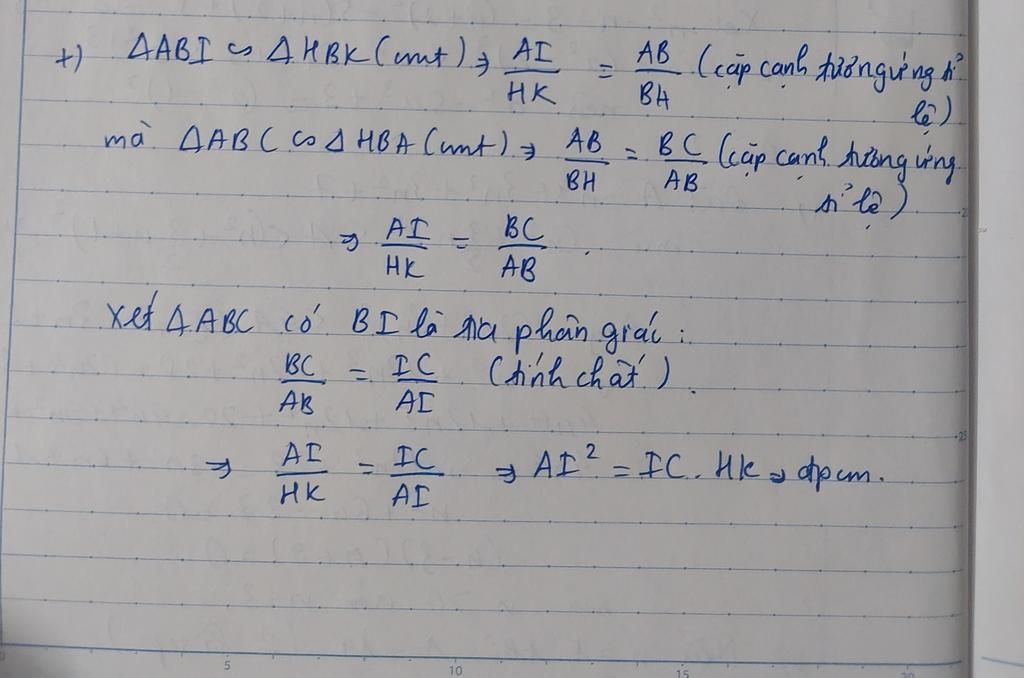 +) ΔABI ∽ ΔHBK (cmt) ⇒ AI/HK = AB/BH (cặp cạnh tương ứng tỉ lệ)
mà ΔABC ∽ ΔHBA (cmt) ⇒ AB/BH = BC/AB (cặp cạnh tương ứng tỉ lệ)
⇒ AI/HK = BC/AB.
Xét ΔABC có BI là tia phân giác:
BC/AB = IC/AI (tính chất)
⇒ AI/HK = IC/AI ⇒ AI² = IC. HK ⇒ đpcm.
5 10 15 20